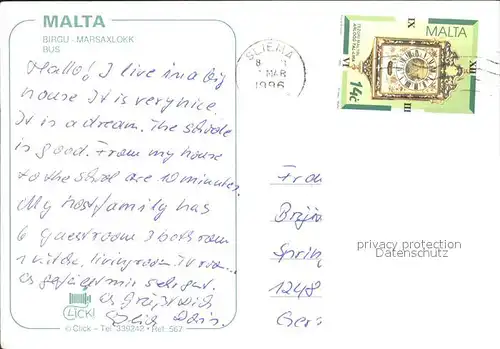 MALTA
BIRGU - MARSAXLOKK
BUS
Hallo! I live in a big
house It is very nice
It is a dream. The schole
is good. From my house
to the shool are 10 minutes.
My hostfamily has
6 guestroom 3 bathroom
1 kitche, livingroom, TV room...
Es gefällt mir sehr gut.
Es grüßt Dich
Doris
CLICK!
© Click - Tel: 339242 • Ref: 567
SLIEMA
8
MAR
1996
MALTA
14c
IX
XII
VI
III
Frau
Spring
1248
Ger
privacy protection
Datenschutz